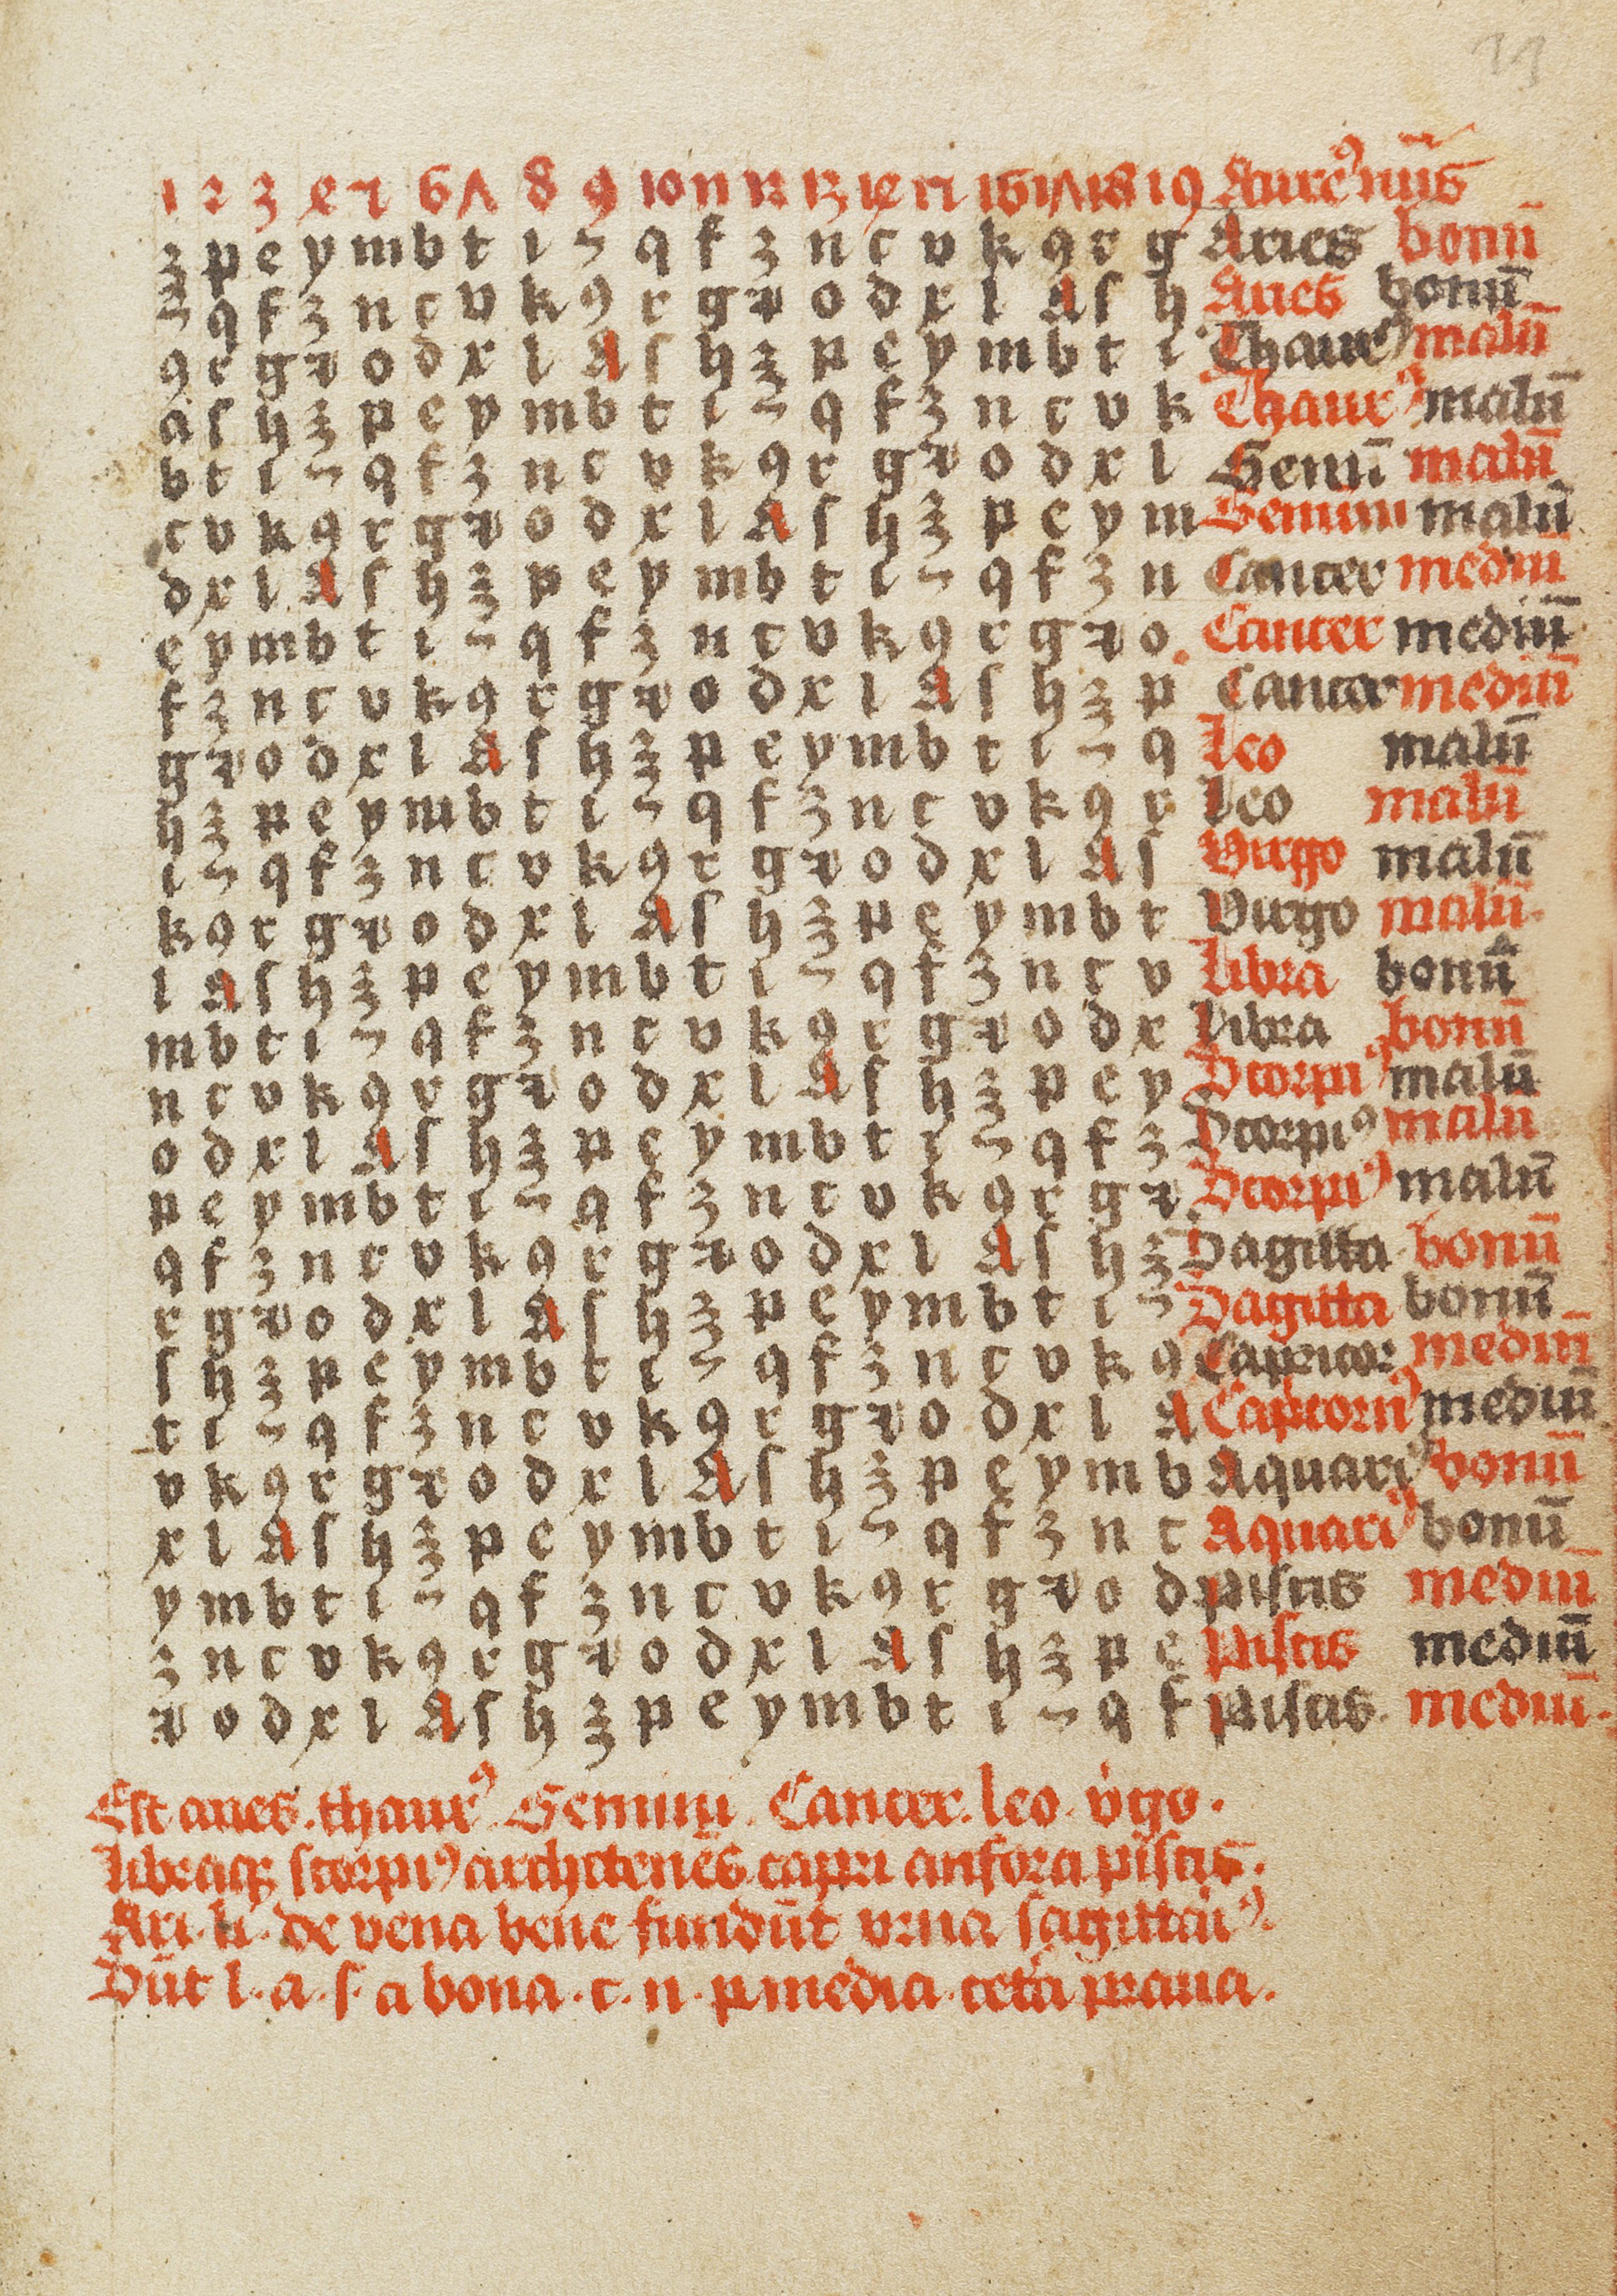 1 2 3 4 5 6 7 8 9 10 11 12 13 14 15 16 17 18 19 Aureꝰ nūs
ꝫ p e y m b t i ⁊ q f z n c v k 9 r g Aries bonū
⁊ q f z n c v k 9 r g ꝛ o d x l A s h Aries bonū
9 r g ꝛ o d x l A s h ꝫ p e y m b t i Thaurꝰ malū
a s h ꝫ p e y m b t i ⁊ q f z n c v k Thaurꝰ malū
b t i ⁊ q f z n c v k 9 r g ꝛ o d x l Gemiī malū
c v k 9 r g ꝛ o d x l A s h ꝫ p e y m Gemini malū
d x l A s h ꝫ p e y m b t i ⁊ q f z n Cancer mediū
e y m b t i ⁊ q f z n c v k 9 r g ꝛ o Cancer mediū
f z n c v k 9 r g ꝛ o d x l A s h ꝫ p Cancer mediū
g ꝛ o d x l A s h ꝫ p e y m b t i ⁊ q Leo malū
h ꝫ p e y m b t i ⁊ q f z n c v k 9 r Leo malū
i ⁊ q f z n c v k 9 r g ꝛ o d x l A s Virgo malū
k 9 r g ꝛ o d x l A s h ꝫ p e y m b t Virgo malū
l A s h ꝫ p e y m b t i ⁊ q f z n c v Libra bonū
m b t i ⁊ q f z n c v k 9 r g ꝛ o d x Libra bonū
n c v k 9 r g ꝛ o d x l A s h ꝫ p e y Scorpiꝰ malū
o d x l A s h ꝫ p e y m b t i ⁊ q f z Scorpiꝰ malū
p e y m b t i ⁊ q f z n c v k 9 r g ꝛ Scorpiꝰ malū
q f z n c v k 9 r g ꝛ o d x l A s h ꝫ Sagitta bonū
r g ꝛ o d x l A s h ꝫ p e y m b t i ⁊ Sagitta bonū
s h ꝫ p e y m b t i ⁊ q f z n c v k 9 Capricor mediū
t i ⁊ q f z n c v k 9 r g ꝛ o d x l A Capcornꝰ mediū
v k 9 r g ꝛ o d x l A s h ꝫ p e y m b Aquariꝰ bonū
x l A s h ꝫ p e y m b t i ⁊ q f z n c Aquariꝰ bonū
y m b t i ⁊ q f z n c v k 9 r g ꝛ o d Piscis mediū
z n c v k 9 r g ꝛ o d x l A s h ꝫ p e Piscis mediū
ꝛ o d x l A s h ꝫ p e y m b t i ⁊ q f Piscis mediū
Est aries . thaurꝰ Geminij . Cancer . leo . v̇go .
libraqꝫ scorpiꝰ architenēs capri anfora piscis .
Ari . li . de vena bene fundūt vrna sagittariꝰ
Sūt l . a . s . a bona . c . n . p media . cetā praua .